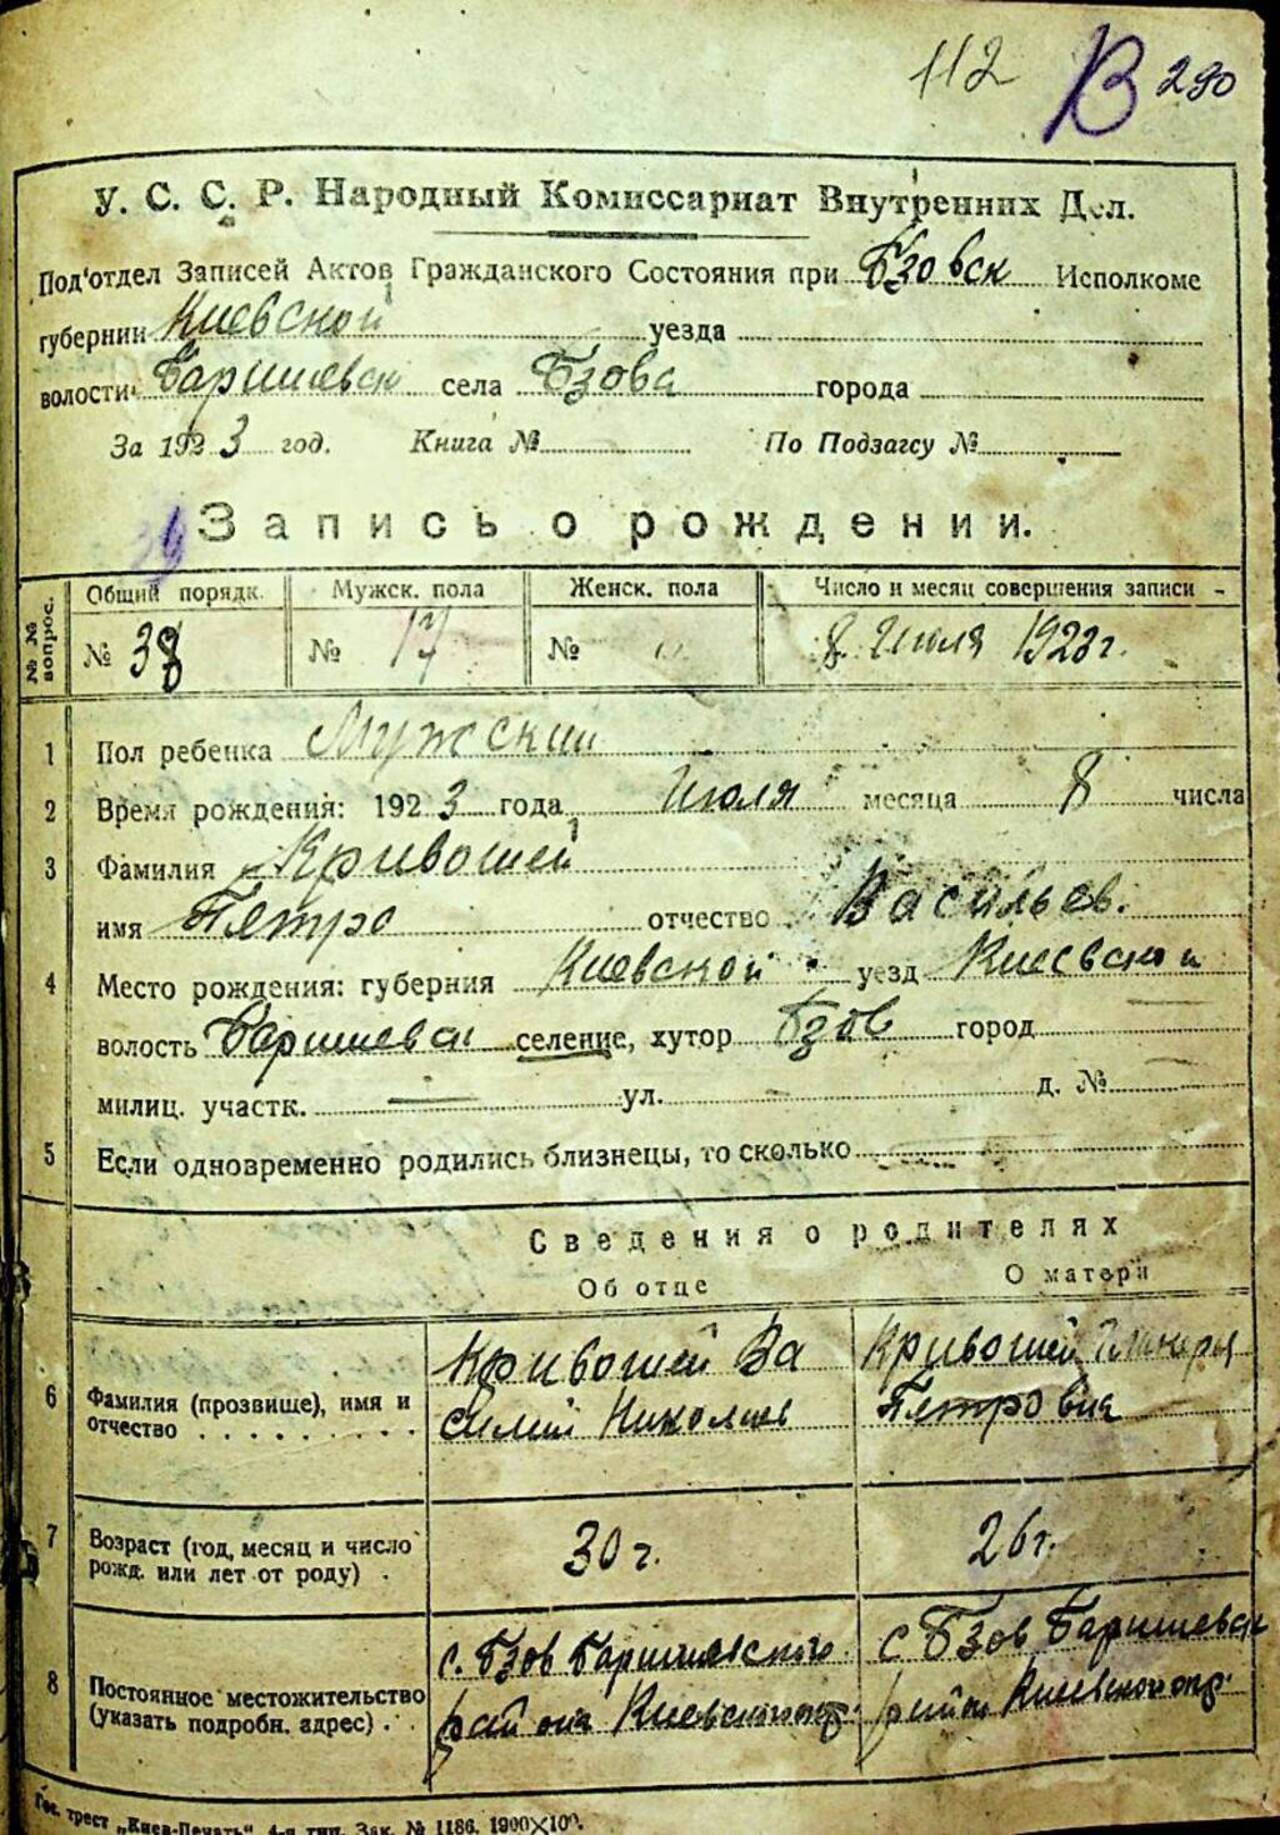 112 В 290
У. С. С. Р. Народный Комиссариат Внутренних Дел.
Под'отдел Записей Актов Гражданского Состояния при Бзовск Исполкоме
губернии Киевской уезда
волости Баришевск села Бзова города
За 1923 год. Книга № По Подзагсу №
Запись о рождении.
№№ вопрос. Общий порядк. Мужск. пола Женск. пола Число и месяц совершения записи
№ 38 № 17 № 8 Июля 1923 г.
1 Пол ребенка Мужский
2 Время рождения: 1923 года Июля месяца 8 числа
3 Фамилия Кривошей
имя Петро отчество Васильев.
4 Место рождения: губерния Киевской уезд Киевской
волость Баришевск селение, хутор Бзов город
милиц. участк. — ул. — д. №
5 Если одновременно родились близнецы, то сколько
Сведения о родителях
Об отце О матери
6 Фамилия (прозвище), имя и отчество
Кривошей Ва
силий Николаев
Кривошей
Петровна
7 Возраст (год, месяц и число рожд. или лет от роду) 30 г. 26 г.
8 Постоянное местожительство (указать подробн. адрес)
с. Бзов Баришевского
района Киевской окр.
с Бзов Баришевск
район Киевской окр.
Гос. трест „Киев-Печать“ 4-я тип. Зак. № 1186. 1900×100.